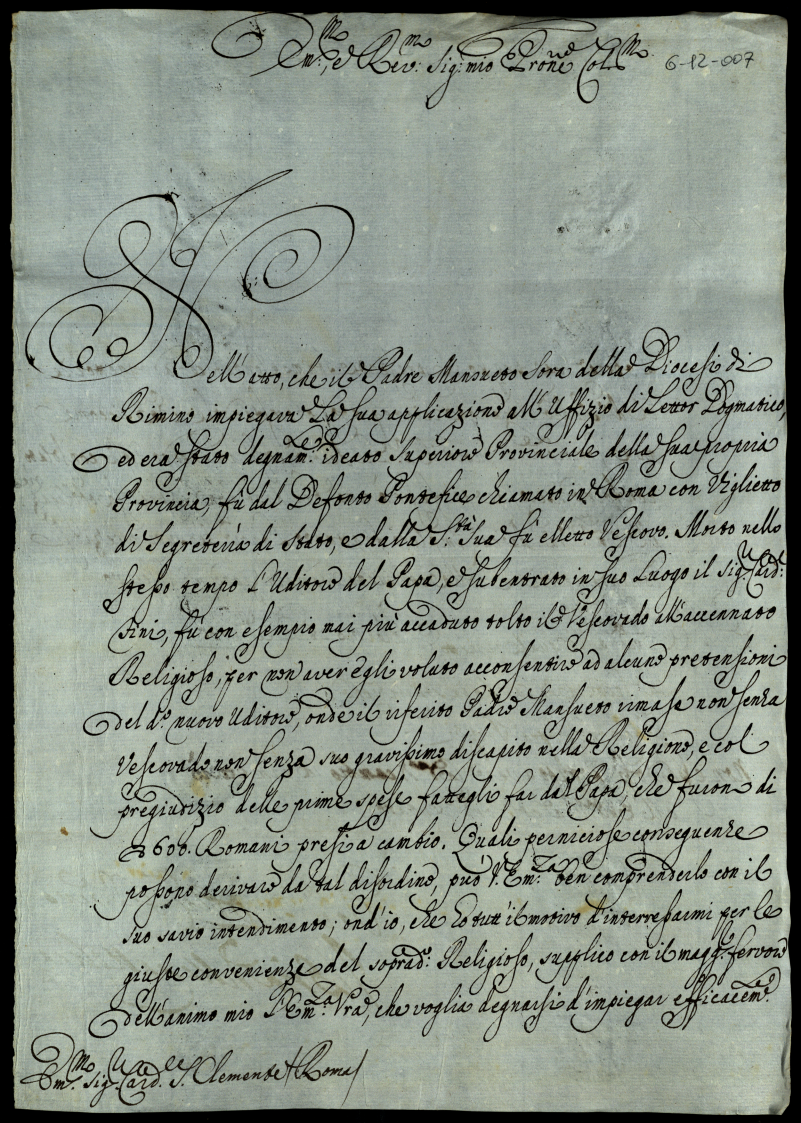 Em.mo e Rev.mo Sig.r mio P.rone Col.mo
6-12-007
Nell'atto, che il Padre Mansueto Sora della Diocesi di
Rimino impiegava La sua applicazione all'Uffizio di Lettor Dogmatico,
ed era stato degnam.te ideato Superiore Provinciale della sua propria
Provincia, fù dal Defonto Pontefice chiamato in Roma con Viglietto
di Segreteria di Stato, e dalla S.tà Sua fù elletto Vescovo. Morto nello
stesso tempo L'Uditore del Papa, e subentrato in suo Luogo il Sig.r Card.e
Fini, fù con esempio mai più accaduto tolto il Vescovado all'accennato
Religioso, per non aver egli voluto acconsentire ad alcune pretensioni
del d.o nuovo Uditore, onde il riferito Padre Mansueto rimase non senza
Vescovado non senza suo gravissimo discapito nella Religione, e col
pregiudizio delle prime spese fattegli far dal Papa, che furon di
600. Romani presi a cambio. Quali perniciose conseguenze
possono derivare da tal disordine, può V. Em.za ben comprenderlo con il
suo savio intendimento; ond'io, che hò tutt'il motivo d'interressarmi per le
giuste convenienze del soprad.o Religioso, supplico con il magg.r fervore
dell'animo mio l'Em.za Vra, che voglia degnarsi d'impiegar efficacem.te
Em.mo Sig.r Card.le S. Clemente / Roma /